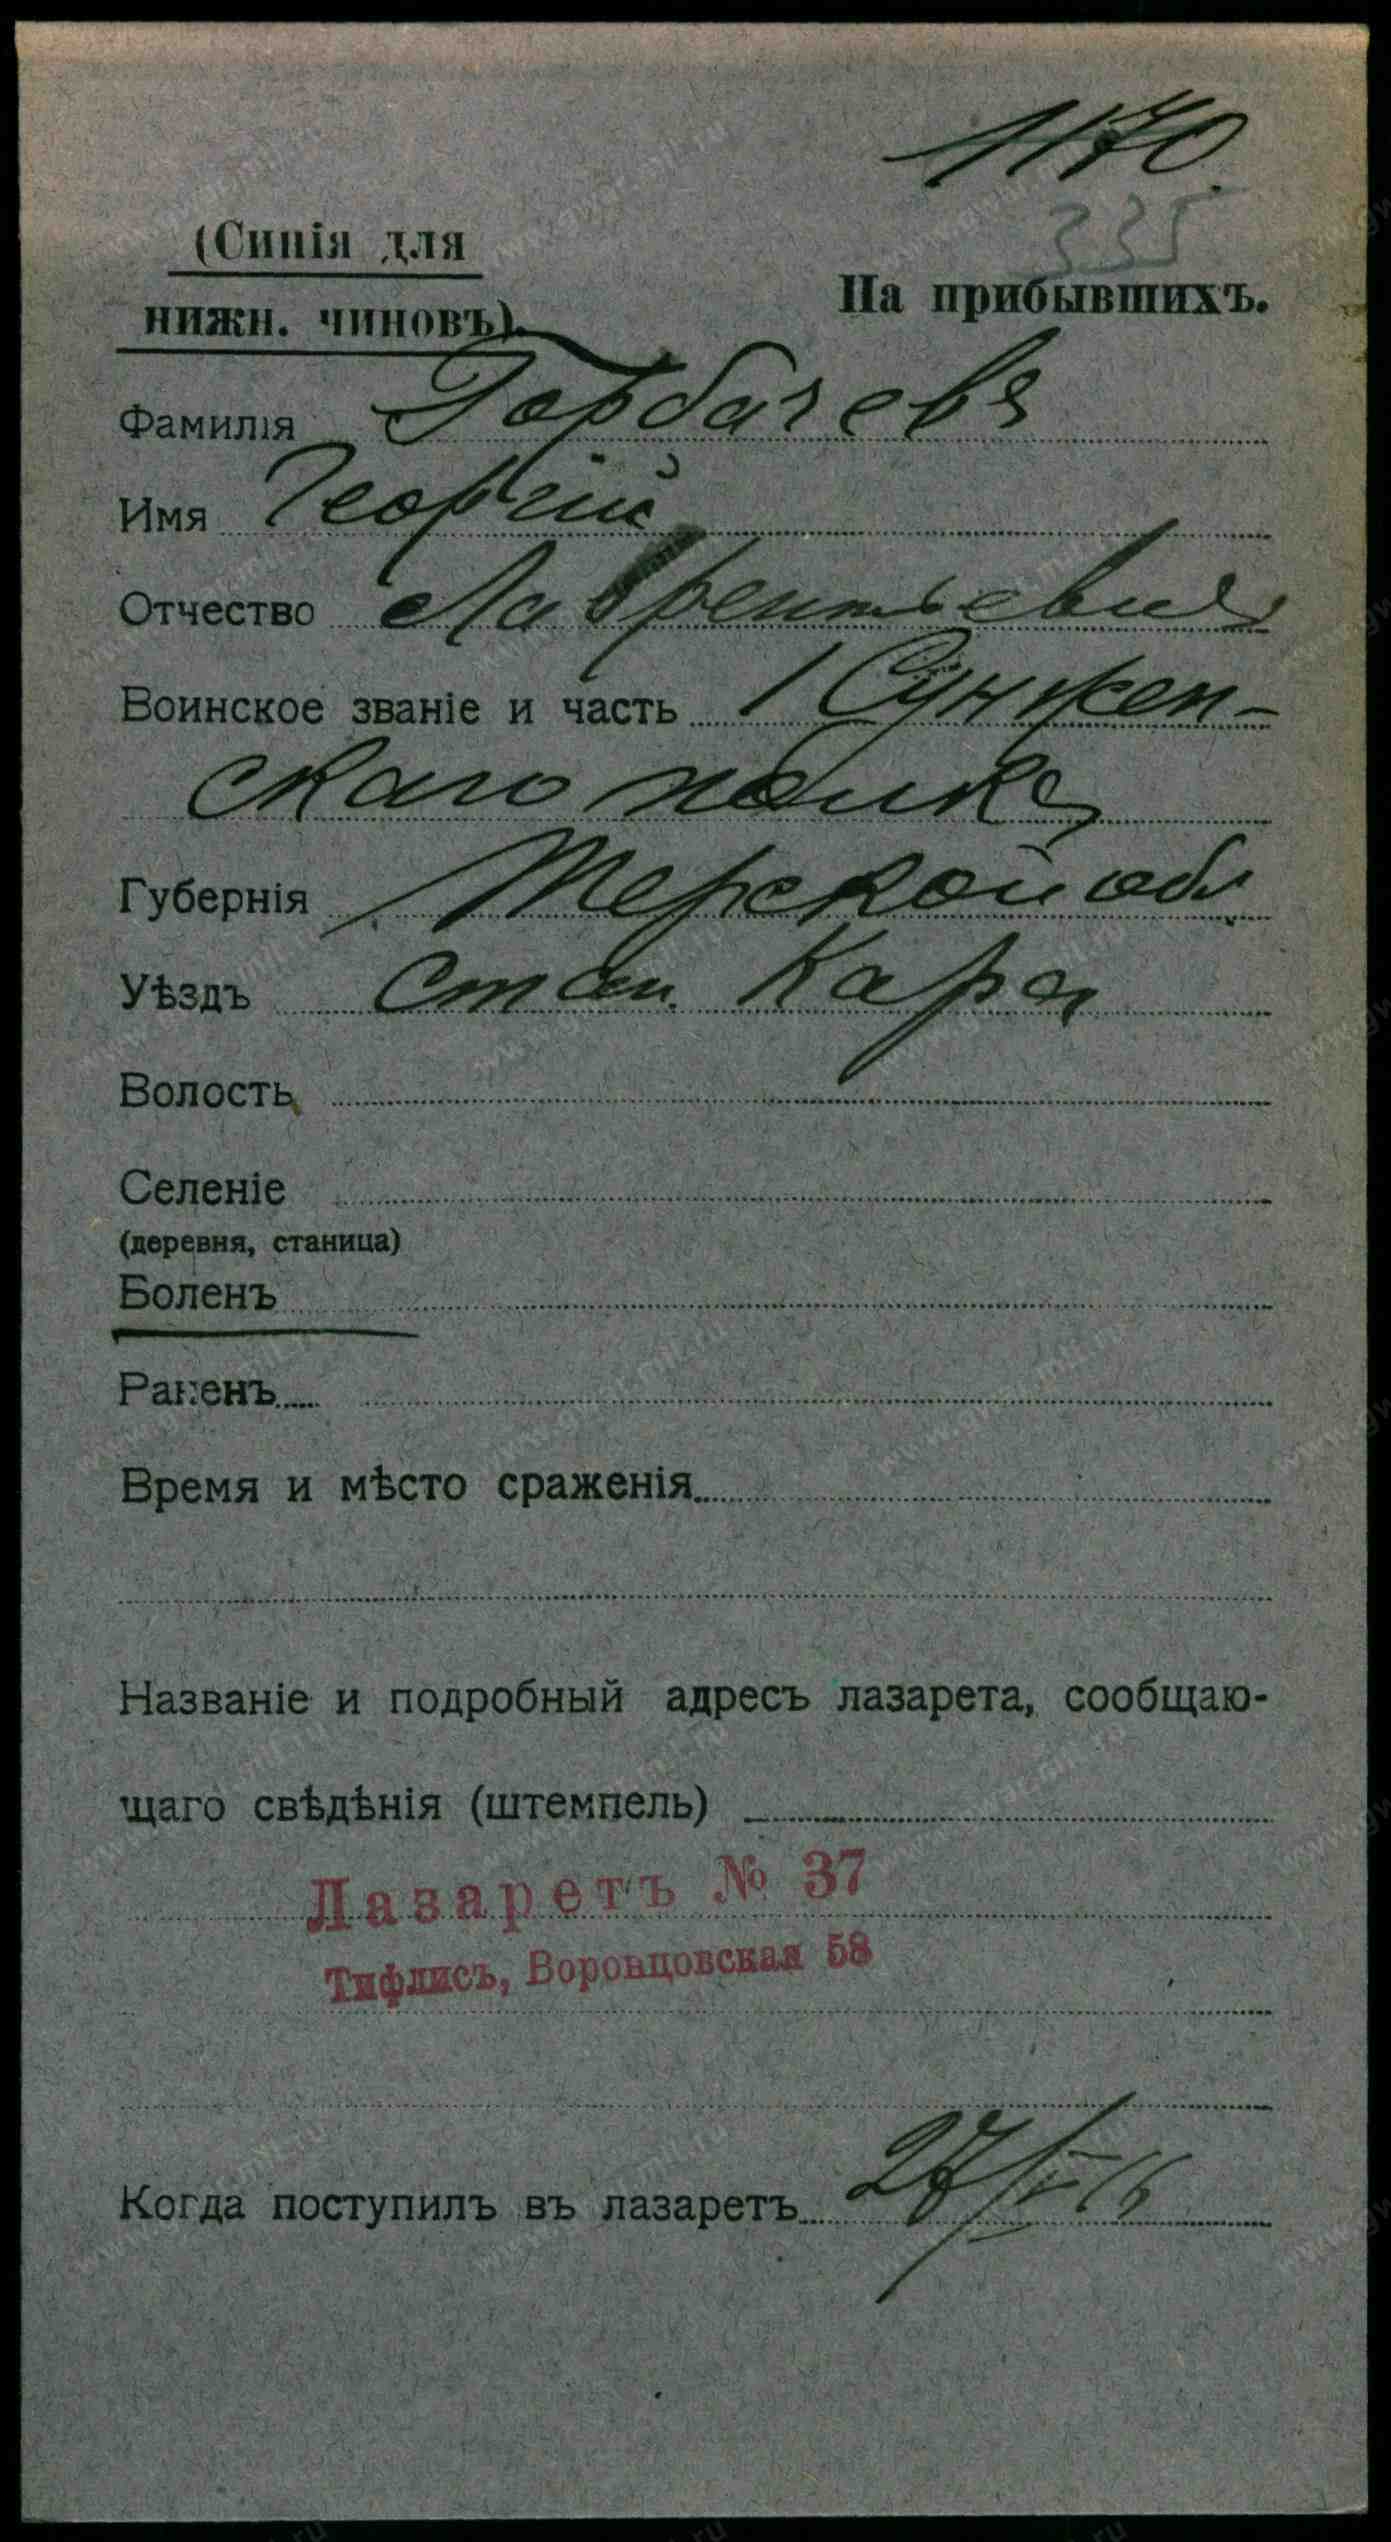 1170.
335
(Синія для
нижн. чиновъ).
На прибывшихъ.
Фамилія Горбачевъ
Имя Георгій
Отчество Лаврентьевичъ
Воинское званіе и часть 1 Сунжен-
скаго полка
Губернія Терской обл
Уѣздъ стан. Кара
Волость
Селеніе
(деревня, станица)
Боленъ
Раненъ
Время и мѣсто сраженія
Названіе и подробный адресъ лазарета, сообщаю-
щаго свѣдѣнія (штемпель)
Лазаретъ № 37
Тифлисъ, Воронцовская 58
Когда поступилъ въ лазаретъ 27/